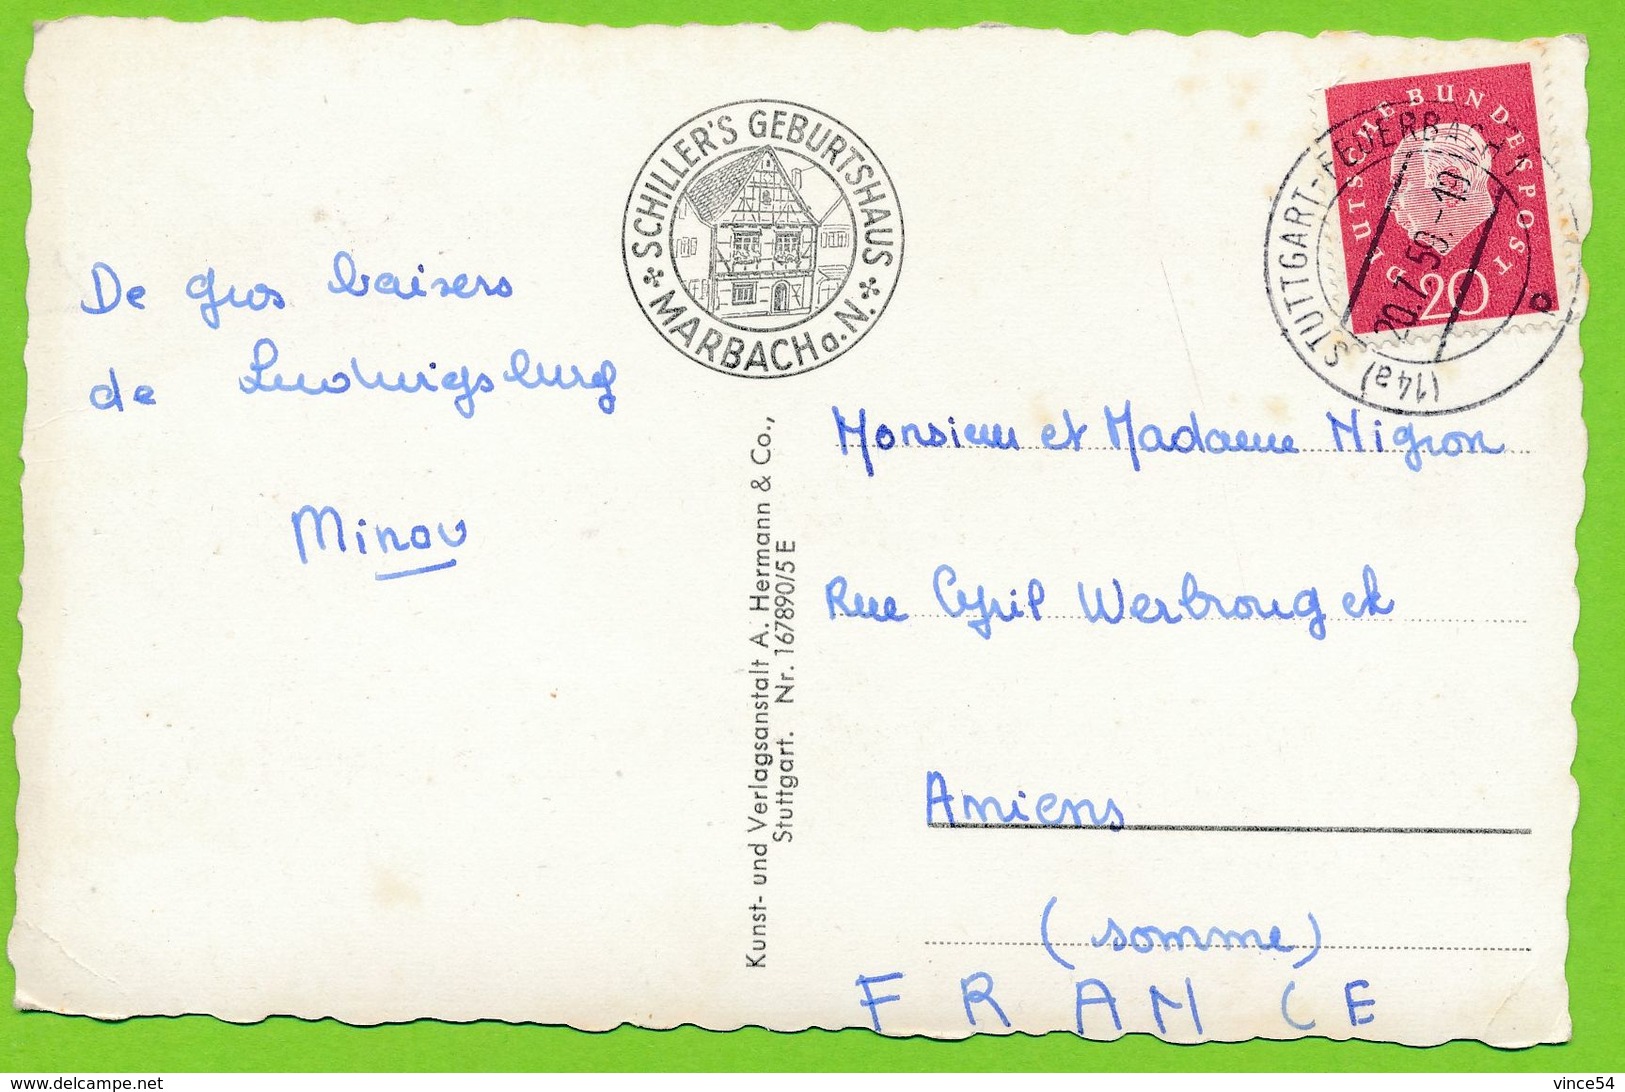 SCHILLER'S GEBURTSHAUS
MARBACH a. N.
DEUTSCHE BUNDESPOST
20
(14a) STUTTGART-FEUERBACH 1
20.7.59.-19
b
De gros baisers
de Ludwigsburg
Minou
Kunst- und Verlagsanstalt A. Hermann & Co.,
Stuttgart. Nr. 167890/5 E
Monsieur et Madame Migron
Rue Cyril Werbrougek
Amiens
(somme)
FRANCE
https://www.delcampe.net
vince54